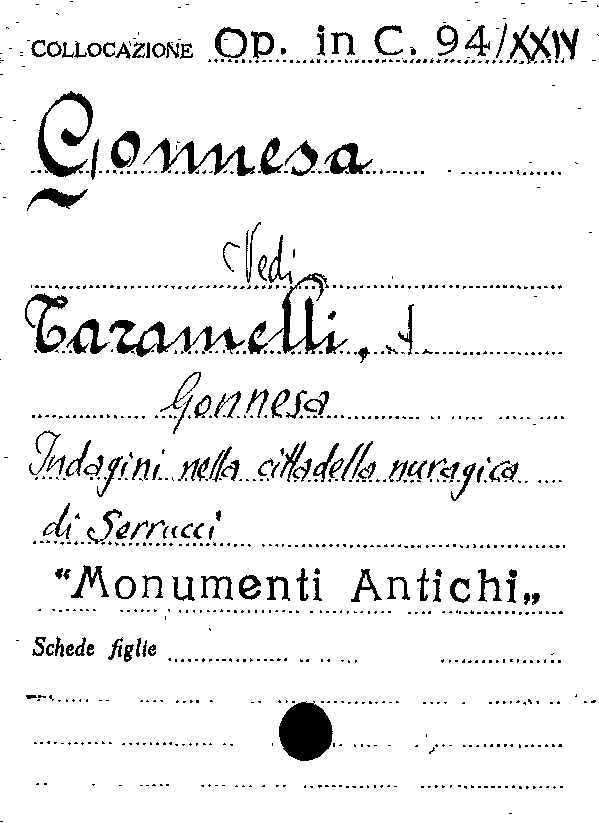 COLLOCAZIONE Op. in C. 94/XXIV
Gonnesa
Vedi
Taramelli, A.
Gonnesa
Indagini nella cittadella nuragica
di Serrucci
"Monumenti Antichi„
Schede figlie